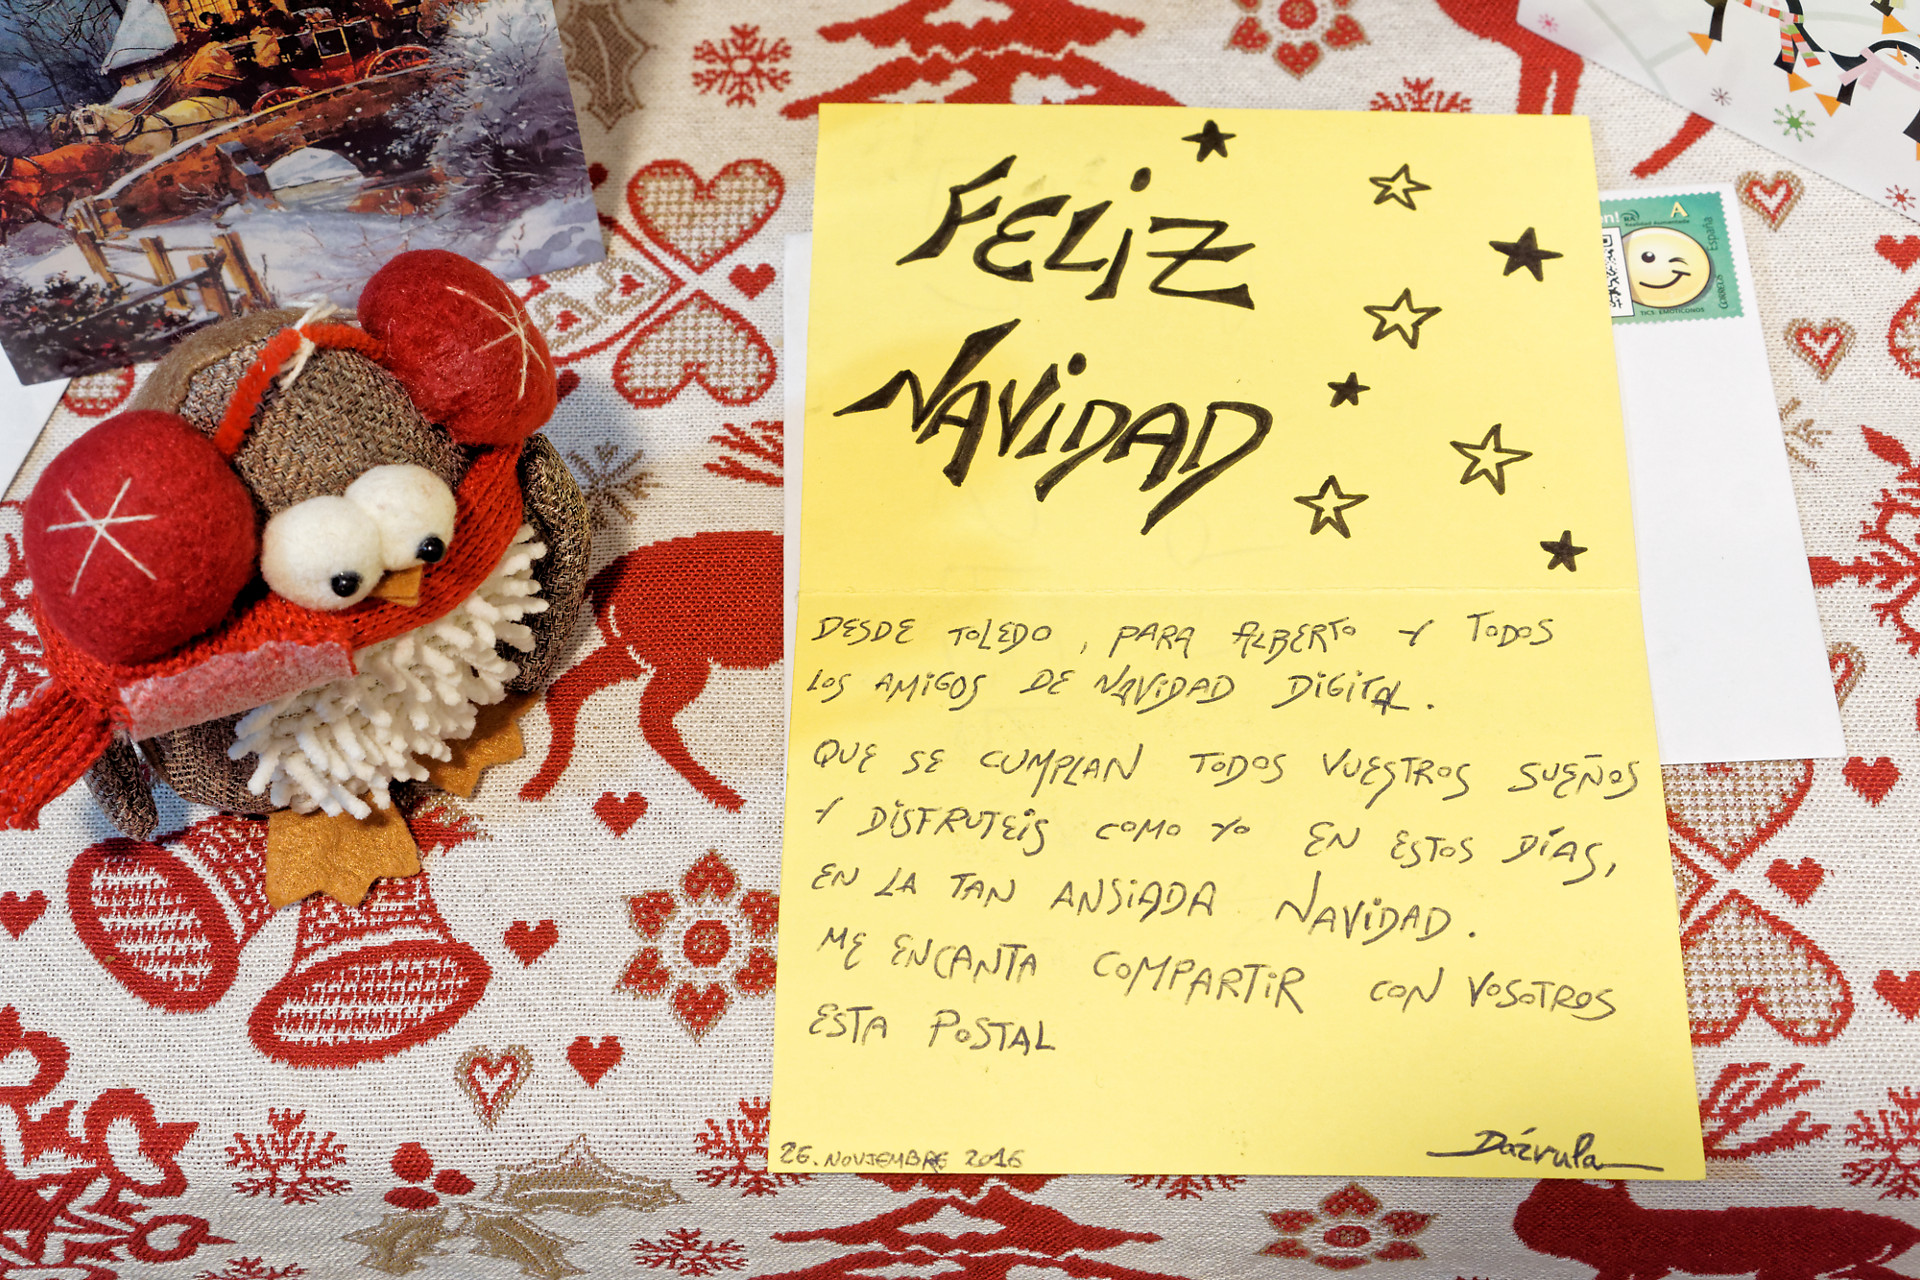 FELIZ
NAVIDAD
DESDE TOLEDO, PARA ALBERTO Y TODOS
LOS AMIGOS DE NAVIDAD DIGITAL.
QUE SE CUMPLAN TODOS VUESTROS SUEÑOS
Y DISFRUTEIS COMO YO EN ESTOS DÍAS,
EN LA TAN ANSIADA NAVIDAD.
ME ENCANTA COMPARTIR CON VOSOTROS
ESTA POSTAL
26. NOVIEMBRE 2016
Dázvula
A
Realidad Aumentada
España
Correos
TICS: EMOTICONOS